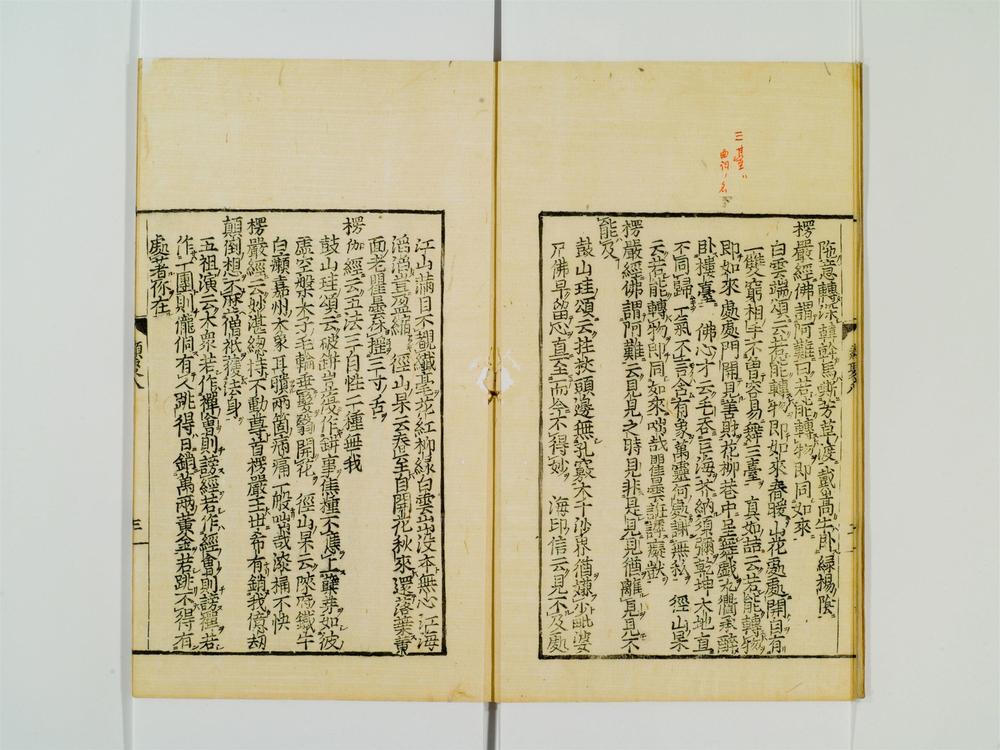 三臺ハ
曲詞ノ名
陁意轉深韓幹馬嘶芳草渡戴嵩牛臥綠楊陰
楞嚴經佛謂阿難曰若能轉物即同如來
白雲端頌云若能轉物即如來春暖山花處處開自有
一雙窮相手不曽容易舞三臺 真如喆云若能轉物
即如來處處門開見善財花柳巷中呈舞戲九衢承醉
臥樓臺 佛心才云毛吞巨海芥納須彌乾坤大地直
不同歸一氣不言含有象萬靈何處謝無私 徑山杲
云若能轉物即同如來咄哉瞿曇誑謼癡獃
楞嚴經佛謂阿難云見見之時見非是見見猶離見見不
能及
鼓山珪頌云拄杖頭邊無孔竅大千沙界猶嫌小毗婆
尸佛早留心直至而今不得妙 海印信云見不及處
江山滿目不覩纖毫花紅柳綠白雲出没本無心江海
滔滔豈盈縮 徑山杲云春至自開花秋來還落葉黃
面老瞿曇休搖三寸舌
楞伽經云五法三自性二種無我
鼓山珪頌云破缾豈復作缾事焦種不應上蘖芽如彼
虛空槃木子毛輪垂髮翳開花 徑山杲云陝府鐵牛
白癩嘉州大象耳聵兩箇病痛一般咄哉漆桶不快
楞嚴經云妙湛緫持不動尊首楞嚴王世希有銷我億劫
顛倒想不歴僧祇獲法身
五祖演云大衆若作禪會則謗經若作經會則謗禪若
作一團則儱侗有人跳得日銷萬兩黃金若跳不得有
處著你在
三